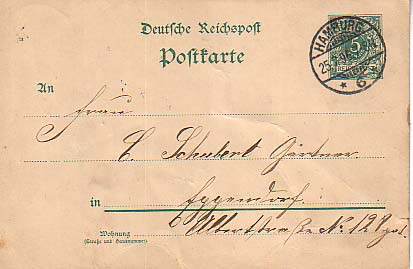 Deutsche Reichspost
Postkarte
HAMBURG
5
6
An
Frau
C. Schubert Gärtner.
in Eppendorf.
Wohnung
(Straße und Hausnummer)
Albertstraße No. 12